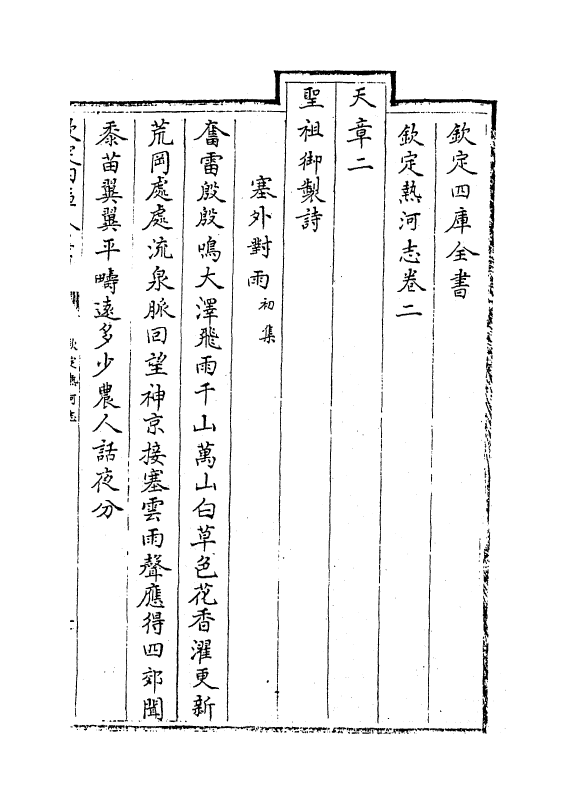 欽定四庫全書
欽定熱河志卷二
天章二
聖祖御製詩
塞外對雨初集
奮雷殷殷鳴大澤飛雨千山萬山白草色花香濯更新
荒岡處處流泉脈回望神京接塞雲雨聲應得四郊聞
黍苗翼翼平疇遠多少農人話夜分
欽定熱河志